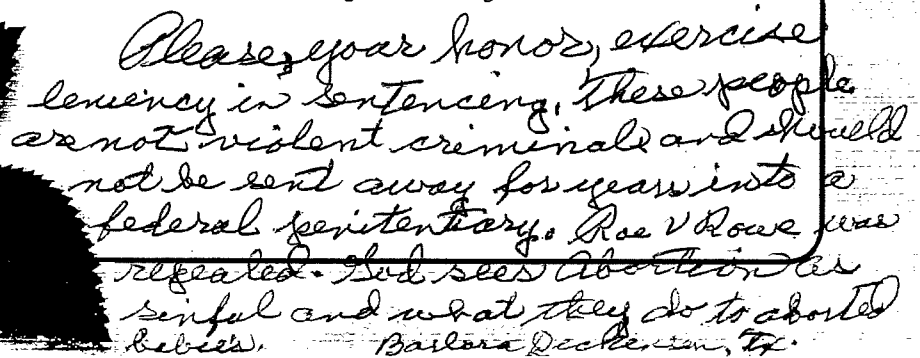 Please, your honor, exercise
leniency in sentencing. These people
are not violent criminals and should
not be sent away for years into a
federal penitentiary. Roe V Rowe was
repealed. God sees Abortion as
sinful and what they do to aborted
babies. Barbara Tx.